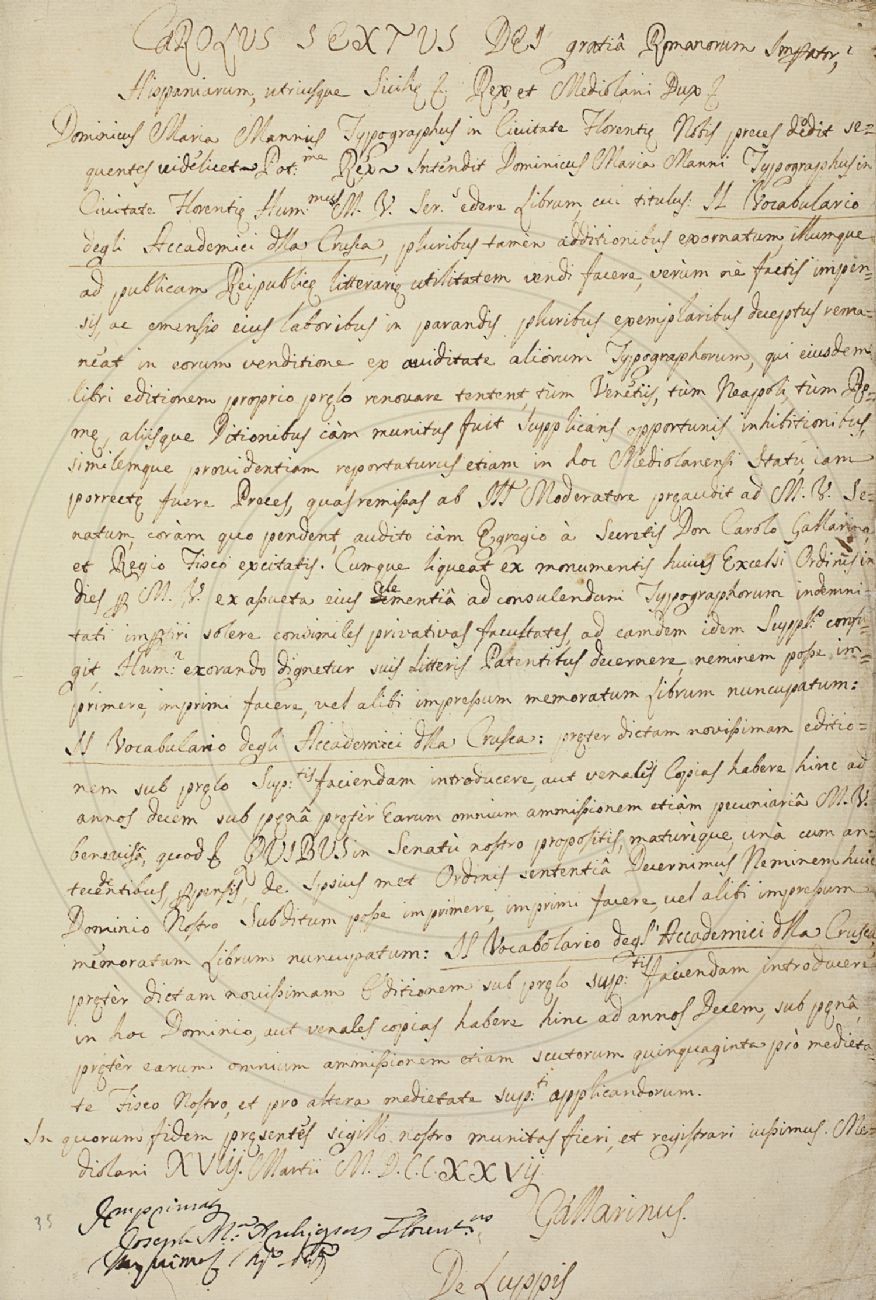 CAROLVS SEXTVS DEI gratiâ Romanorum Imperator,
Hispaniarum, utriusque Sicilię &. Rex, et Mediolani Dux &
Dominicus Maria Mannius Typographus in Civitate Florentię Nobis preces dedit se=
quentes videlicet Pot:me Rex Intendit Dominicus Maria Manni Typographus in
Civitate Florentię Hum:mus M. V. Ser.s edere Librum, cui titulus: Il Vocabulario
degli Accademici dlla Crusca, pluribus tamen additionibus exornatum, illumque
ad publicam Reipublicę litterarię utilitatem vendi facere, verùm nè factis impen=
sis, ac emensis eius laboribus in parandis pluribus exemplaribus deceptus rema=
neat in eorum venditione ex aviditate aliorum Typographorum, qui eiusdem
libri editionem proprio pręlo renovare tentent, tùm Venetiis, tùm Neapoli, tùm Ro=
mę, aliisque Ditionibus iàm munitus fuit Supplicans opportunis inhibitionibus,
similemque providentiam reportaturus etiam in hoc Mediolanensi Statu, iam
porrectę fuere Preces, quas remissas ab Ill Moderatore pręaudit ad M. V. Se=
natum, coràm quo pendent, audito iàm Egregio à Secretis Don Carolo Gallarino,
et Regio Fisco excitatis. Cumque liqueat ex monumentis huius Excelsi Ordinis in
dies p M. V. ex assueta eius clementiâ ad consulendum Typographorum indemni=
tati impertiri solere consimiles privativas facultates, ad eamdem idem Suppl:s confu=
git, Hum:r exorando dignetur suis Litteris Patentibus decernere neminem posse im=
primere, imprimi facere, vel alibi impressum memoratum Librum nuncupatum:
Il Vocabulario degli Accademici dlla Crusca: pręter dictam novissimam editio=
nem sub pręlo Sup:tis faciendam introducere, aut venales Copias habere hinc ad
annos decem sub pęnâ pręter Earum omnium ammissionem etiàm pecuniariâ M. V.
benevisâ, quod & QUIBUS in Senatù nostro propositis, maturèque, unà cum an=
tecedentibus, ppensis, de Ipsius met Ordinis sententiâ Decernimus Neminem huic
Dominio Nostro Subditum posse imprimere, imprimi facere, vel alibi impressum
memoratum Librum nuncupatum: Il Vocabolario degl'Accademici dlla Crusca,
pręter dictam novissimam Editionem sub pręlo supp:tis faciendam introducere
in hoc Dominio, aut venales copias habere hinc ad annos Decem, sub pęnâ,
pręter earum omnium ammissionem etiam scutorum quinquaginta prò medieta=
te Fisco Nostro, et pro altera medietate supp:ti applicandorum.
In quorum fidem pręsentes sigillo nostro munitas fieri, et registrari iussimus. Me=
diolani XVIIj. Martii M. D. C. C. XXVij.
Gallarinus.
Imprimat
Joseph M.a Florent.us
De Luppis
35